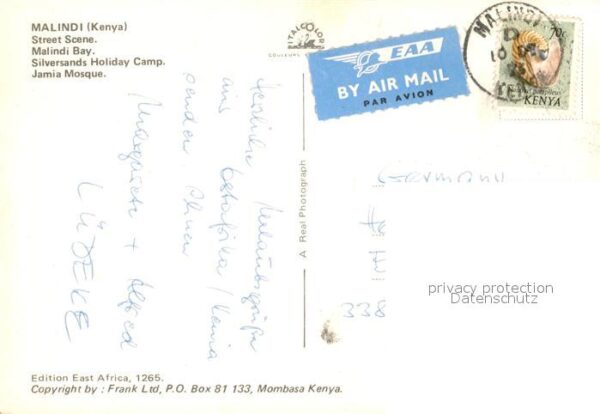 MALINDI (Kenya)
Street Scene.
Malindi Bay.
Silversands Holiday Camp.
Jamia Mosque.
ITALCOLOR
EAA
BY AIR MAIL
PAR AVION
MALINDI
70c
KENYA
A Real Photograph
Herzliche Urlaubsgrüße
aus Ostafrika / Kenia
senden Ihnen
Marguerite + Alfred
LÜDEKE
Germany
338
privacy protection
Datenschutz
Edition East Africa, 1265.
Copyright by : Frank Ltd, P.O. Box 81 133, Mombasa Kenya.